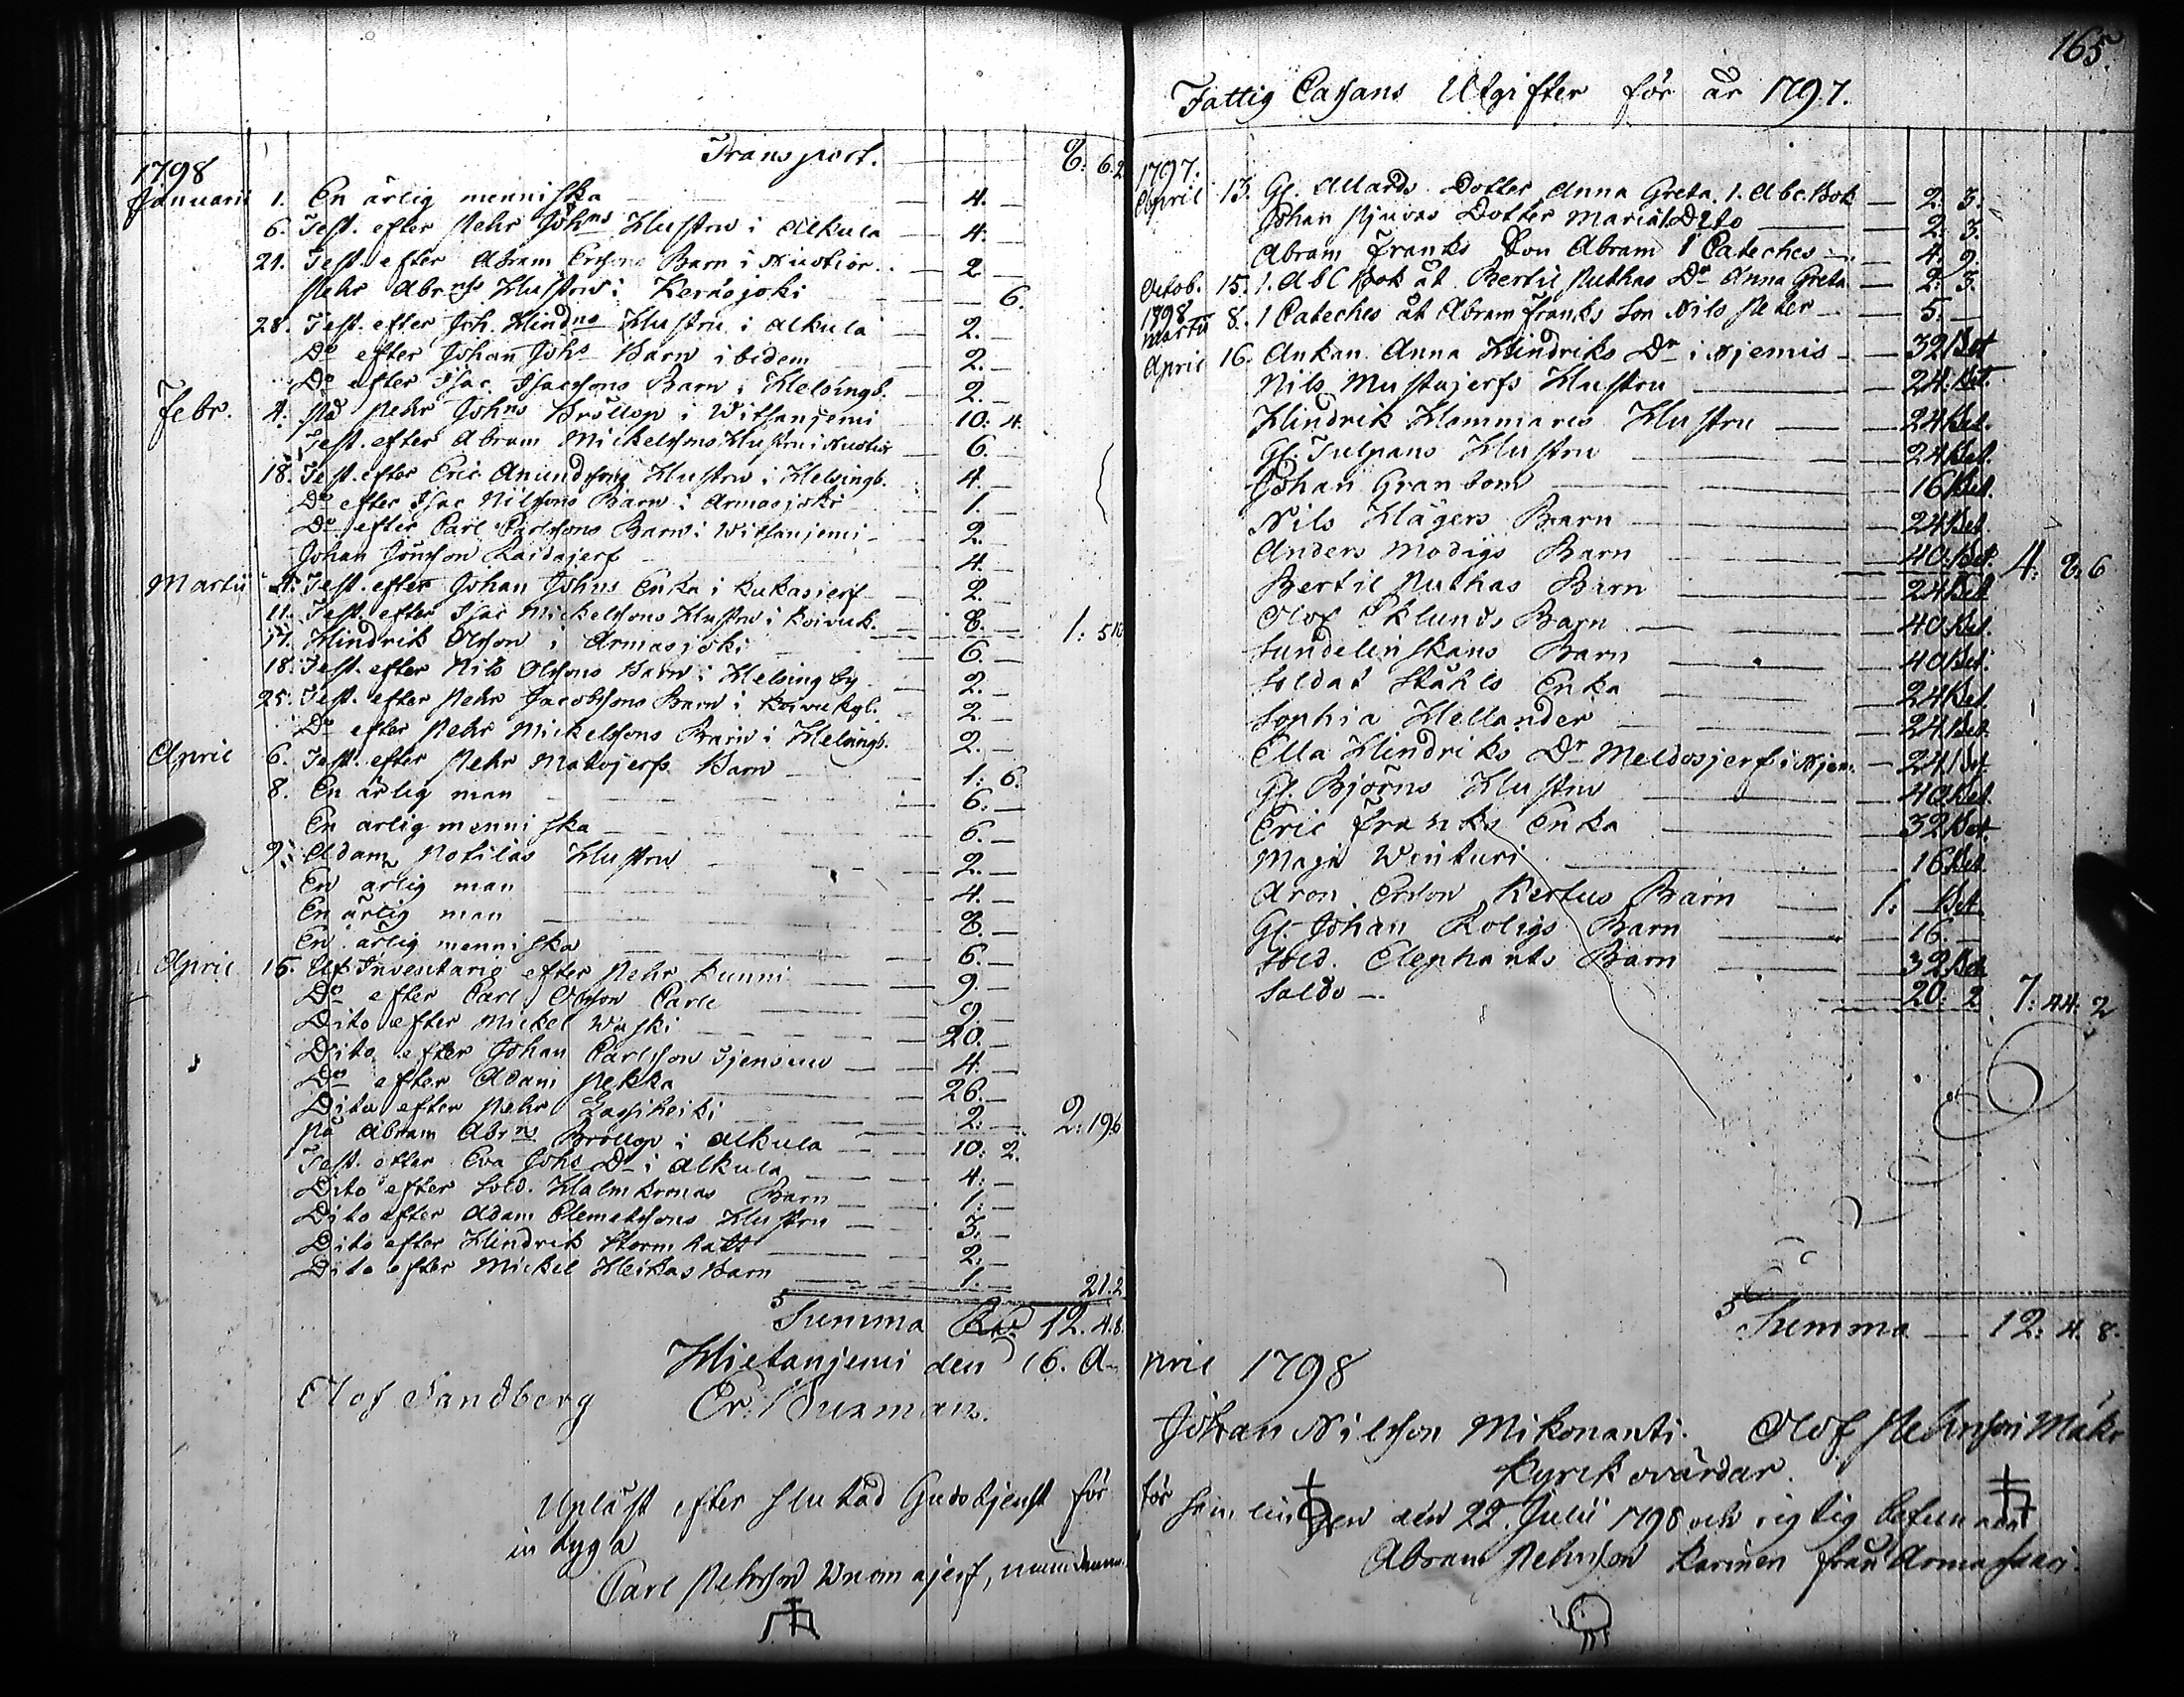 Transport. — 8: 6.2
1798
Januarii 1. En ärlig menniska — 4. —
6. Test. efter Pehr Johns Hustru i Alkula — 4. —
21. Test. efter Abram Ersons Barn i — 2 —
Pehr Abrms Hustru i Keräsjoki — 6.
28. Test. efter Joh. Hindrs Hustru i Alkula — 2. —
Do efter Johan Johs Barn ibidem — 2. —
Do efter Isac Isacssons Barn i Helsingb. — 2. —
Febr. 4. På Pehr Johns Bröllop i Witsanjemi — 10: 4.
Test. efter Abram Mickelssons Hustru i — 6. —
18. Test. efter Eric Anundssons Hustru i Helsingb. — 4. —
Do efter Isac Nilssons Barn i Armasjoki — 1. —
Do efter Carl Carlssons Barn i Witsanjemi — 2. —
Johan Jönsson Raidajerf — 4. —
Martii 4. Test. efter Johan Johns Enka i Kukasjerf — 2. —
11. Test. efter Isac Mickelssons Hustru i Koivuk. — 8. — 1: 5
17. Hindrik Olsson i Armasjoki — 6. —
18. Test. efter Nils Olssons Barn i Helsingby — 2. —
25. Test. efter Pehr Jacobssons Barn i Koivukyl. — 2. —
Do efter Pehr Mickelssons Barn i Helsingb. — 2. —
April 6. Test. efter Pehr Matojerfs Barn — 1: 6.
8. En ärlig man — 6. —
En ärlig menniska — 6. —
9. Adam Notilas Hustru — 2. —
En ärlig man — 4. —
En ärlig man — 8. —
En ärlig menniska — 6. —
April 15. Uti Inventarie efter Pehr Kunni — 9. —
Do efter Carl Olsson Carle — 9 —
Dito efter Mickel Waski — 20. —
Dito efter Johan Carlsson — 4. —
Do efter Adam Pekka — 26. —
Dito efter Pehr Lassiheiki — 2: — 2: 19.6
På Abram Abrms Bröllop i Alkula — 10: 2.
Test. efter Eva Johs Dr i Alkula — 4: —
Dito efter Sold. Halmkronas Barn — 1: —
Dito efter Adam Clemetssons Hustru — 3: —
Dito efter Hindrik Stormhatt — 2: —
Dito efter Mickel Heikas Barn — 1. — 21.2
Summa Rdr 12. 4.8.
165.
Fattig Cassans Utgifter för år 1797.
1797.
April 13. Gl. Allards Dotter Anna Greta 1. Abc Bok — 2: 3.
Johan Dotter Maria 1 Dito — 2: 3.
Abram Franks Son Abram 1 Cateches — 4: 9.
Octob. 15. 1. AbC Bok åt Bertil Ruthas Dr Anna Greta — 2: 3.
1798
Martii 8. 1 Cateches åt Abram Franks Son Nils Peter — 5. —
April 16. Enkan Anna Hindriks Dr i Njemis — 32 Bet
Nils Mustajerfs Hustru — 24. Bet.
Hindrik Hammares Hustru — 24 Bet.
Gl. Tulpans Hustru — 24 Bet.
Johan Granbom — 16 Bet.
Nils Hägers Barn — 24 Bet.
Anders Modigs Barn — 40. Bet. 4: 8. 6
Bertil Ruthas Barn — 24 Bet
Olof Eklunds Barn — 40 Bet.
Sundelinskans Barn — 40 Bet.
Soldat Ståhls Enka — 24 Bet.
Sophia Hellander — 24 Bet.
Ella Hindriks Dr Meldosjerf i Njem. — 24 Bet.
Gl. Björns Hustru — 40 Bet.
Eric Franks Enka — 32 Bet.
Maja Winturi — 16 Bet.
Aron Ersson Kertus Barn — 1: — Bet.
Gl. Johan Roligs Barn — 16. —
Sold. Elephants Barn — 32 Bet.
Saldo — 20: 2 7: 44. 2
Summa — 12: 4. 8.
Hietanjemi den 16. April 1798
Olof Sandberg Er. Burman.
Johan Nilsson Mikonanti. Olof Pehrsson
Kyrckovärdar.
Upläst efter slutad Gudstjenst för församlingen den 22. Julii 1798 och rigtig befunnen
intyga
Carl Pehrsson Wuomajerf, nämdeman
Abram Pehrsson Karinen från Armassaari.